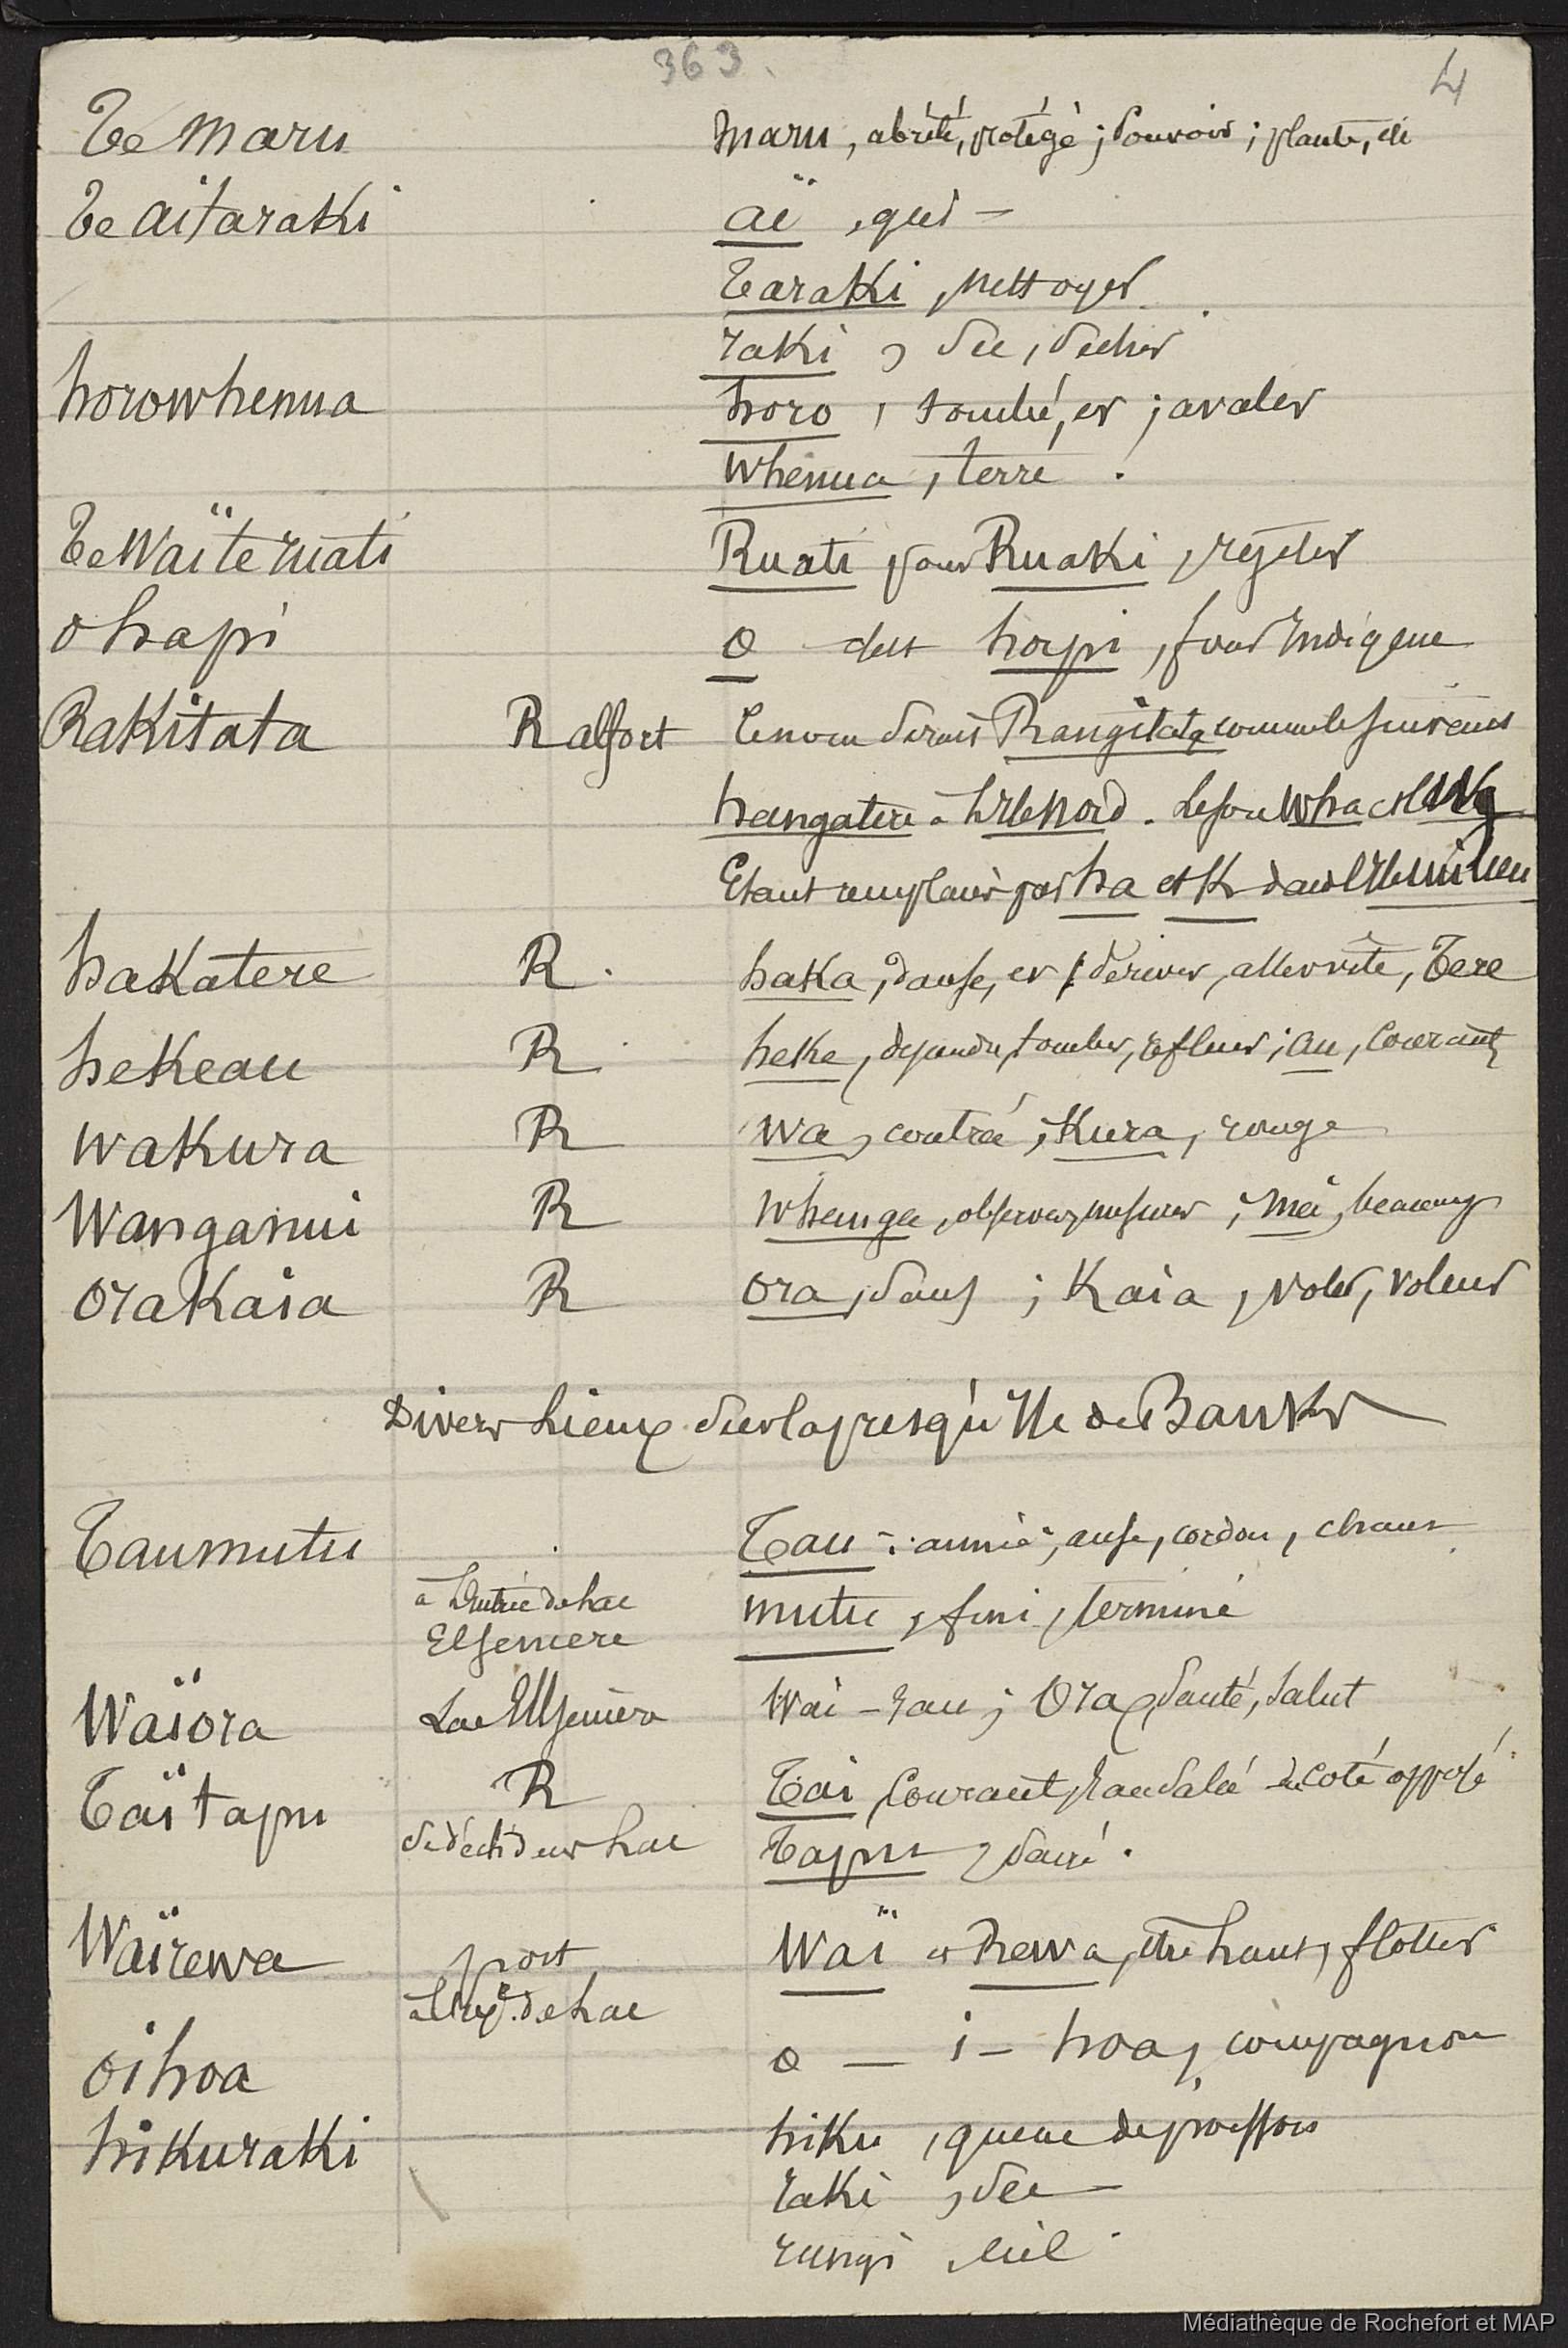 363.
4
Te Maru maru, abrité, protégé ; pouvoir ; plante, etc
Te aitaraki aï, qui –
Taraki, nettoyer
raki, sec, sécher
horowhenua horo, tombé, er ; avaler
whenua, terre.
Te Waïteruati Ruati pour Ruaki, rejeter
ohapi o - des hapi, four Indigene
Rakitata R alfort Le nom serait Rangitata comme le suivant
hangatere à L'Ile Nord. Le son Wha et Ng
Etant remplacés par ha et K dans l'Ile du milieu
hakatere R. haka, danse, er ; dériver, aller vite, Tere
hekeau R heke, descendre, tomber, refluer ; au, courant
Wakura R Wa, contrée ; Kura, rouge
Wanganui R Whanga, observer, mesurer ; nui, beaucoup
Orakaia R Ora, sauf ; Kaia, voler, voleur
Divers Lieux sur la presqu'Ile de Banks
Taumutu Tau : année, anse, cordon, chant
à L'entrée du Lac
Elsemere mutu, fini, terminé
Waïora Lac Ellsemere Wai – Eau ; Ora, Santé, Salut
Taïtapu R Tai, Courant, Eau salée du coté opposé
se déch't dans Lac Tapu, sacré.
Waïrewa port Waï et Rewa, être haut, flotter
à l'Exté. de Lac
oihoa o – i – hoa, compagnon
hikuraki hiku, queue de poisson
raki, sec –
rangi, ciel
Médiathèque de Rochefort et MAP